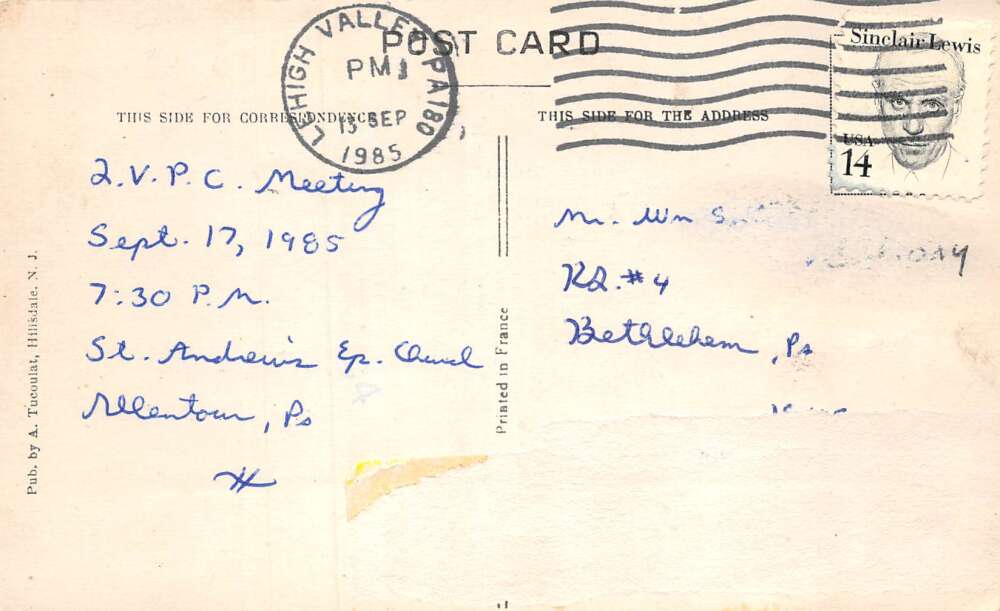 POST CARD
LEHIGH VALLEY PA 180
PM
13 SEP
1985
Sinclair Lewis
USA
14
THIS SIDE FOR CORRESPONDENCE
THIS SIDE FOR THE ADDRESS
L.V.P.C. Meeting
Sept. 17, 1985
7:30 P.M.
St. Andrew's Ep. Church
Allentown, Pa
Mr. Wm
RD. #4
Bethlehem, Pa
Printed in France
Pub. by A. Tucoulat, Hillsdale, N. J.